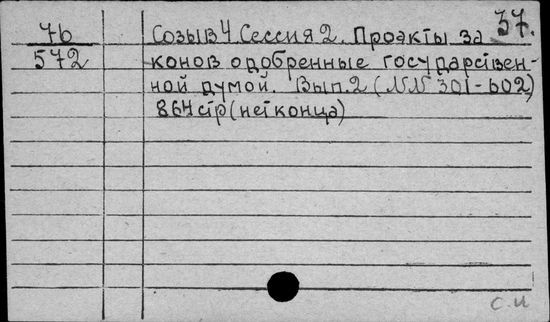 37.
76 Созыв 4 Сессия 2. Проэкты за
572 конов одобренные государствен-
ной думой. Вып. 2 (NN 301-602)
864 стр (нет конца)
с.и